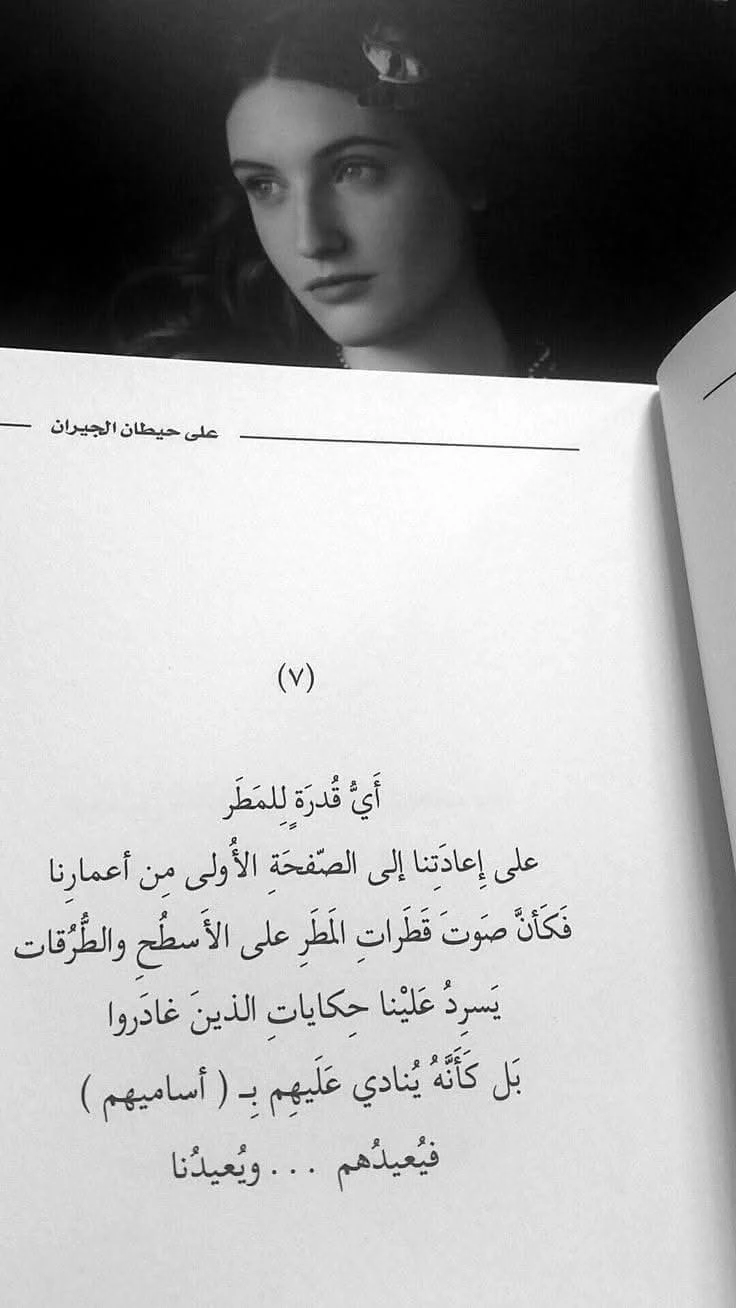 على حيطان الجيران
(٧)
أَيُّ قُدرَةٍ لِلمَطَر
على إِعادَتِنا إلى الصّفحَةِ الأُولى مِن أعمارِنا
فَكَأنَّ صَوتَ قَطَراتِ المَطَرِ على الأَسطُحِ والطُّرُقات
يَسرِدُ عَليْنا حِكاياتِ الذينَ غادَروا
بَل كَأَنَّهُ يُنادي عَلَيهِم بِـ ( أساميهم )
فيُعيدُهم ... ويُعيدُنا